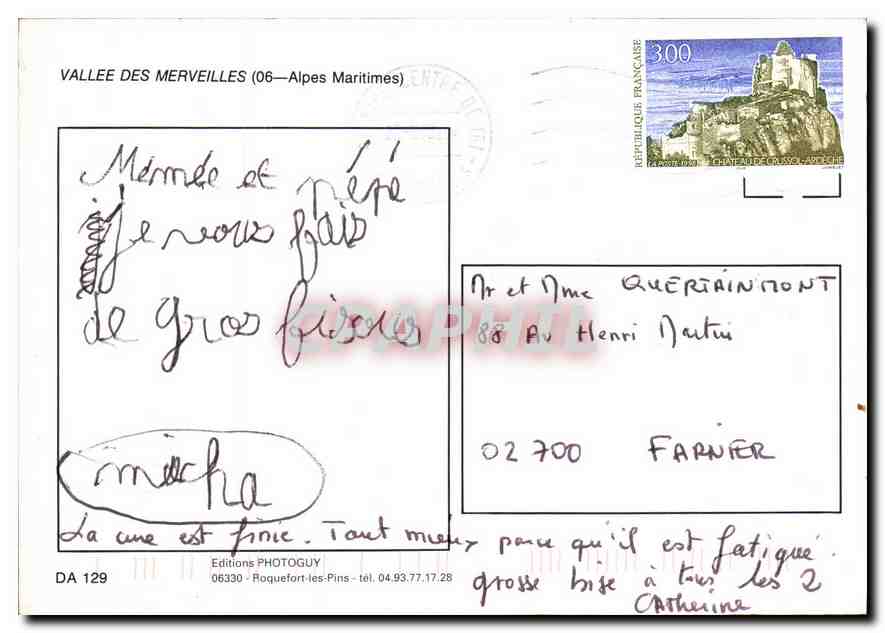 VALLEE DES MERVEILLES (06—Alpes Maritimes)
CENTRE DE TRI
RÉPUBLIQUE FRANÇAISE
3,00
LA POSTE 1998
CHÂTEAU DE CRUSSOL-ARDÈCHE
Mémée et pépé
je vous fais
de gros bisous
micha
Mr et Mme QUERTAINMONT
88 Av Henri Martin
02 700 FARNIER
La cure est finie. Tant mieux parce qu'il est fatigué.
grosse bise à tous les 2
CAtherine
CPAPHIL
DA 129
Editions PHOTOGUY
06330 - Roquefort-les-Pins - tél. 04.93.77.17.28